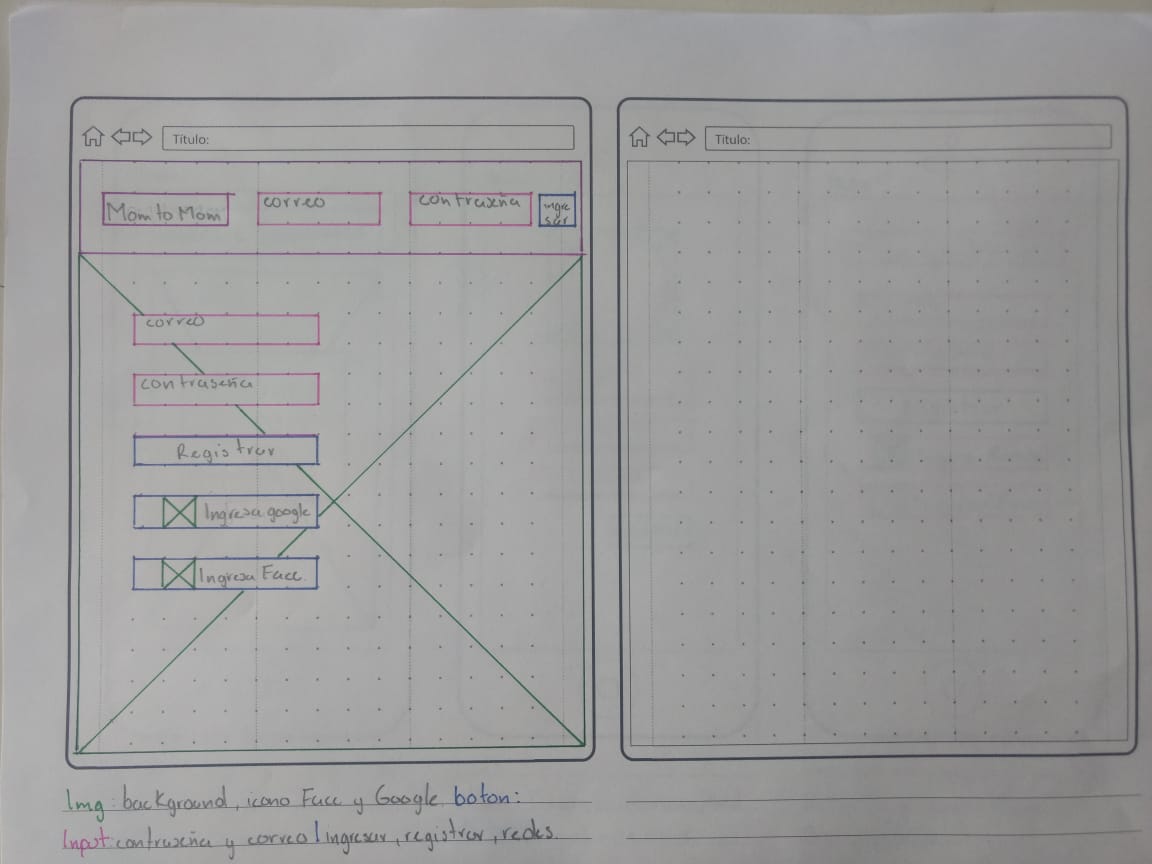 Título:
Título:
Mom to Mom
correo
contraseña
ingre
sar
correo
contraseña
Registrar
Ingresa google
Ingresa Face.
Img: background, icono Face y Google boton:
Input: contraseña y correo | ingresar, registrar, redes.